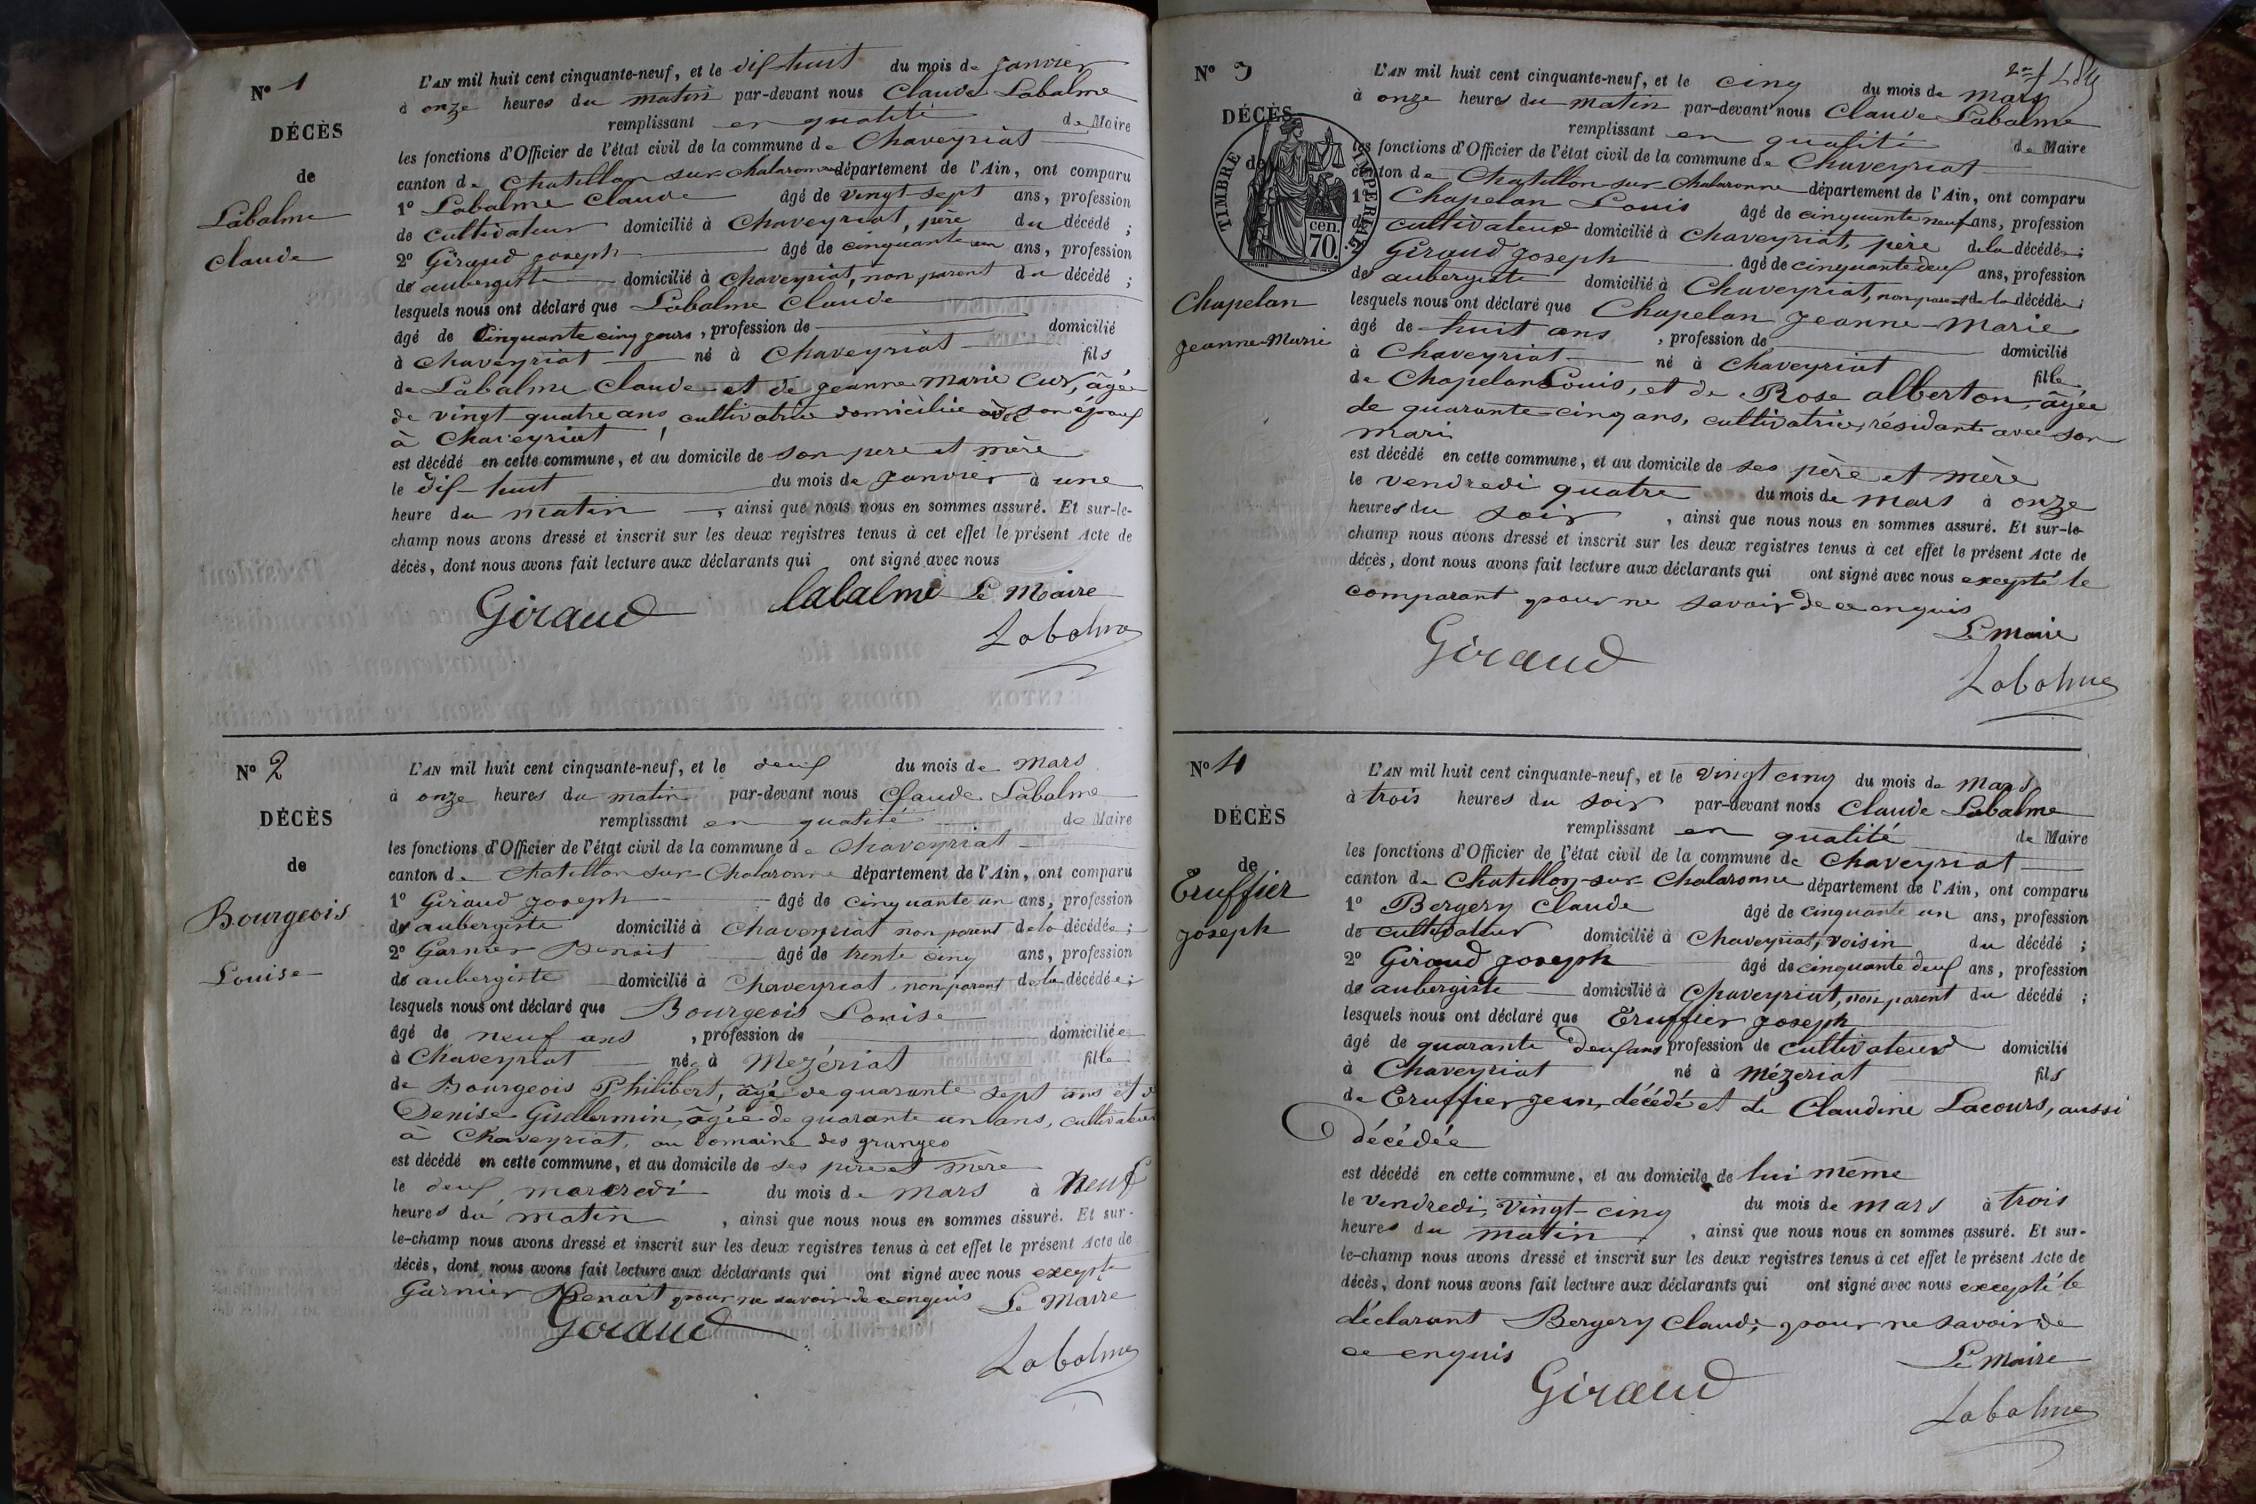 N° 1
DÉCÈS
de
Labalme
Claude
L'AN mil huit cent cinquante-neuf, et le dix huit du mois de janvier
à onze heures du matin par-devant nous Claude Labalme
remplissant en qualité de Maire
les fonctions d'Officier de l'état civil de la commune de Chaveyriat
canton de Chatillon sur Chalaronne département de l'Ain, ont comparu
1° Labalme Claude âgé de vingt sept ans, profession
de cultivateur domicilié à Chaveyriat, père du décédé ;
2° Giraud joseph âgé de cinquante un ans, profession
de aubergiste domicilié à Chaveyriat, non parent du décédé ;
lesquels nous ont déclaré que Labalme Claude
âgé de Cinquante cinq jours, profession de domicilié
à Chaveyriat né à Chaveyriat fils
de Labalme Claude et de jeanne Marie Cur, âgée
de vingt quatre ans, cultivatrice domiciliée avec son époux
à Chaveyriat
est décédé en cette commune, et au domicile de son père et mère
le dix-huit du mois de janvier à une
heure du matin, ainsi que nous nous en sommes assuré. Et sur-le-
champ nous avons dressé et inscrit sur les deux registres tenus à cet effet le présent Acte de
décès, dont nous avons fait lecture aux déclarants qui ont signé avec nous
Giraud labalme Le Maire
Labalme
N° 2
DÉCÈS
de
Bourgeois
Louise
L'AN mil huit cent cinquante-neuf, et le deux du mois de mars
à onze heures du matin par-devant nous Claude Labalme
remplissant en qualité de Maire
les fonctions d'Officier de l'état civil de la commune de Chaveyriat
canton de Chatillon sur Chalaronne département de l'Ain, ont comparu
1° Giraud joseph âgé de cinquante un ans, profession
de aubergiste domicilié à Chaveyriat non parent de la décédée ;
2° Garnier Benoit âgé de trente cinq ans, profession
de aubergiste domicilié à Chaveyriat, non parent de la décédée ;
lesquels nous ont déclaré que Bourgeois Louise
âgé de neuf ans, profession de domiciliée
à Chaveyriat née à Mezériat fille
de Bourgeois Philibert, âgé de quarante sept ans et de
Denise Guillermin, âgée de quarante un ans, cultivateurs
à Chaveyriat, au domaine des granges
est décédé en cette commune, et au domicile de ses père et mère
le deux, mercredi du mois de mars à neuf
heures du matin, ainsi que nous nous en sommes assuré. Et sur-
le-champ nous avons dressé et inscrit sur les deux registres tenus à cet effet le présent Acte de
décès, dont nous avons fait lecture aux déclarants qui ont signé avec nous excepté
Garnier Benoit pour ne savoir de ce enquis Le Maire
Giraud
Labalme
N° 3
DÉCÈS
de
TIMBRE IMPÉRIAL
cen.
70.
Chapelan
Jeanne-Marie
L'AN mil huit cent cinquante-neuf, et le cinq du mois de mars
à onze heures du matin par-devant nous Claude Labalme
remplissant en qualité de Maire
les fonctions d'Officier de l'état civil de la commune de Chaveyriat
canton de Chatillon-sur-Chalaronne département de l'Ain, ont comparu
1° Chapelan Louis âgé de cinquante neuf ans, profession
de cultivateur domicilié à Chaveyriat, père de la décédée ;
2° Giraud Joseph âgé de cinquante deux ans, profession
de aubergiste domicilié à Chaveyriat, non parent de la décédée ;
lesquels nous ont déclaré que Chapelan Jeanne-Marie
âgé de huit ans, profession de domicilié
à Chaveyriat né à Chaveyriat fille
de Chapelan Louis, et de Rose alberton, âgée
de quarante-cinq ans, cultivatrice, résidante avec son
mari
est décédé en cette commune, et au domicile de ses père et mère
le vendredi quatre du mois de mars à onze
heures du soir, ainsi que nous nous en sommes assuré. Et sur-le-
champ nous avons dressé et inscrit sur les deux registres tenus à cet effet le présent Acte de
décès, dont nous avons fait lecture aux déclarants qui ont signé avec nous excepté le
comparant pour ne savoir de ce enquis
Giraud Le Maire
Labalme
N° 4
DÉCÈS
de
Eruffier
joseph
L'AN mil huit cent cinquante-neuf, et le vingt cinq du mois de mars
à trois heures du soir par-devant nous Claude Labalme
remplissant en qualité de Maire
les fonctions d'Officier de l'état civil de la commune de Chaveyriat
canton de Chatillon-sur-Chalaronne département de l'Ain, ont comparu
1° Bergery Claude âgé de cinquante un ans, profession
de cultivateur domicilié à Chaveyriat, voisin du décédé ;
2° Giraud joseph âgé de cinquante deux ans, profession
de aubergiste domicilié à Chaveyriat, non parent du décédé ;
lesquels nous ont déclaré que Eruffier joseph
âgé de quarante deux ans profession de cultivateur domicilié
à Chaveyriat né à Mézeriat fils
de Eruffier jean, décédé et de Claudine Lacours, aussi
décédée
est décédé en cette commune, et au domicile de lui même
le vendredi, vingt-cinq du mois de mars à trois
heures du matin, ainsi que nous nous en sommes assuré. Et sur-
le-champ nous avons dressé et inscrit sur les deux registres tenus à cet effet le présent Acte de
décès, dont nous avons fait lecture aux déclarants qui ont signé avec nous excepté le
déclarant Bergery Claude, pour ne savoir de
ce enquis Le Maire
Giraud
Labalme